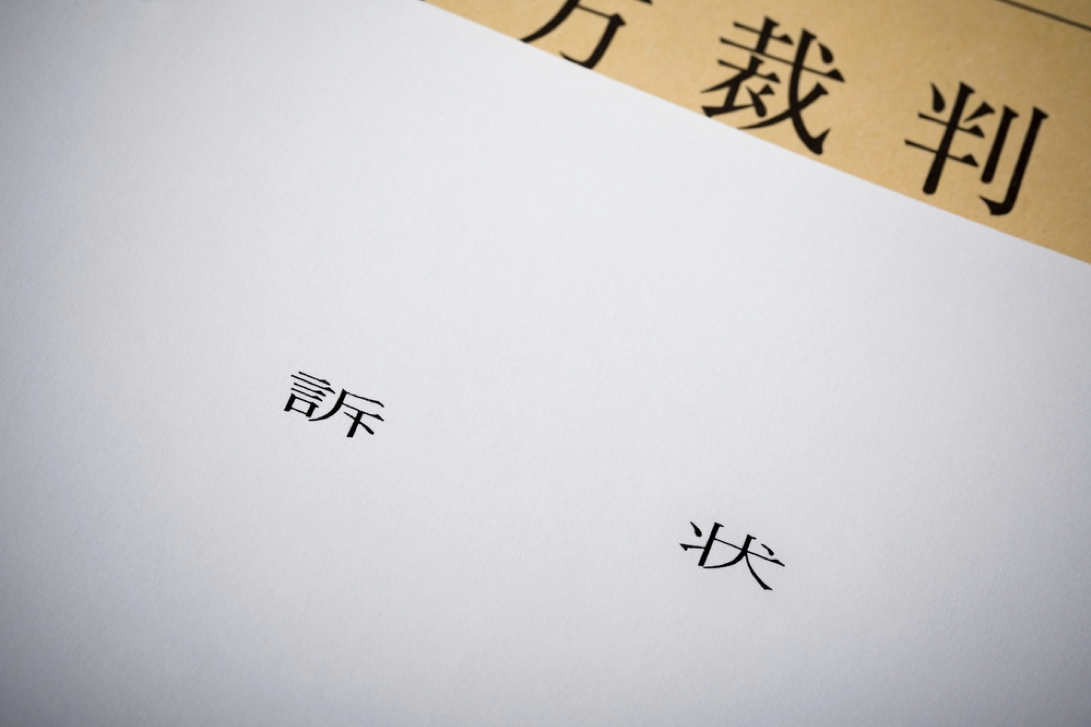 方裁判
訴状